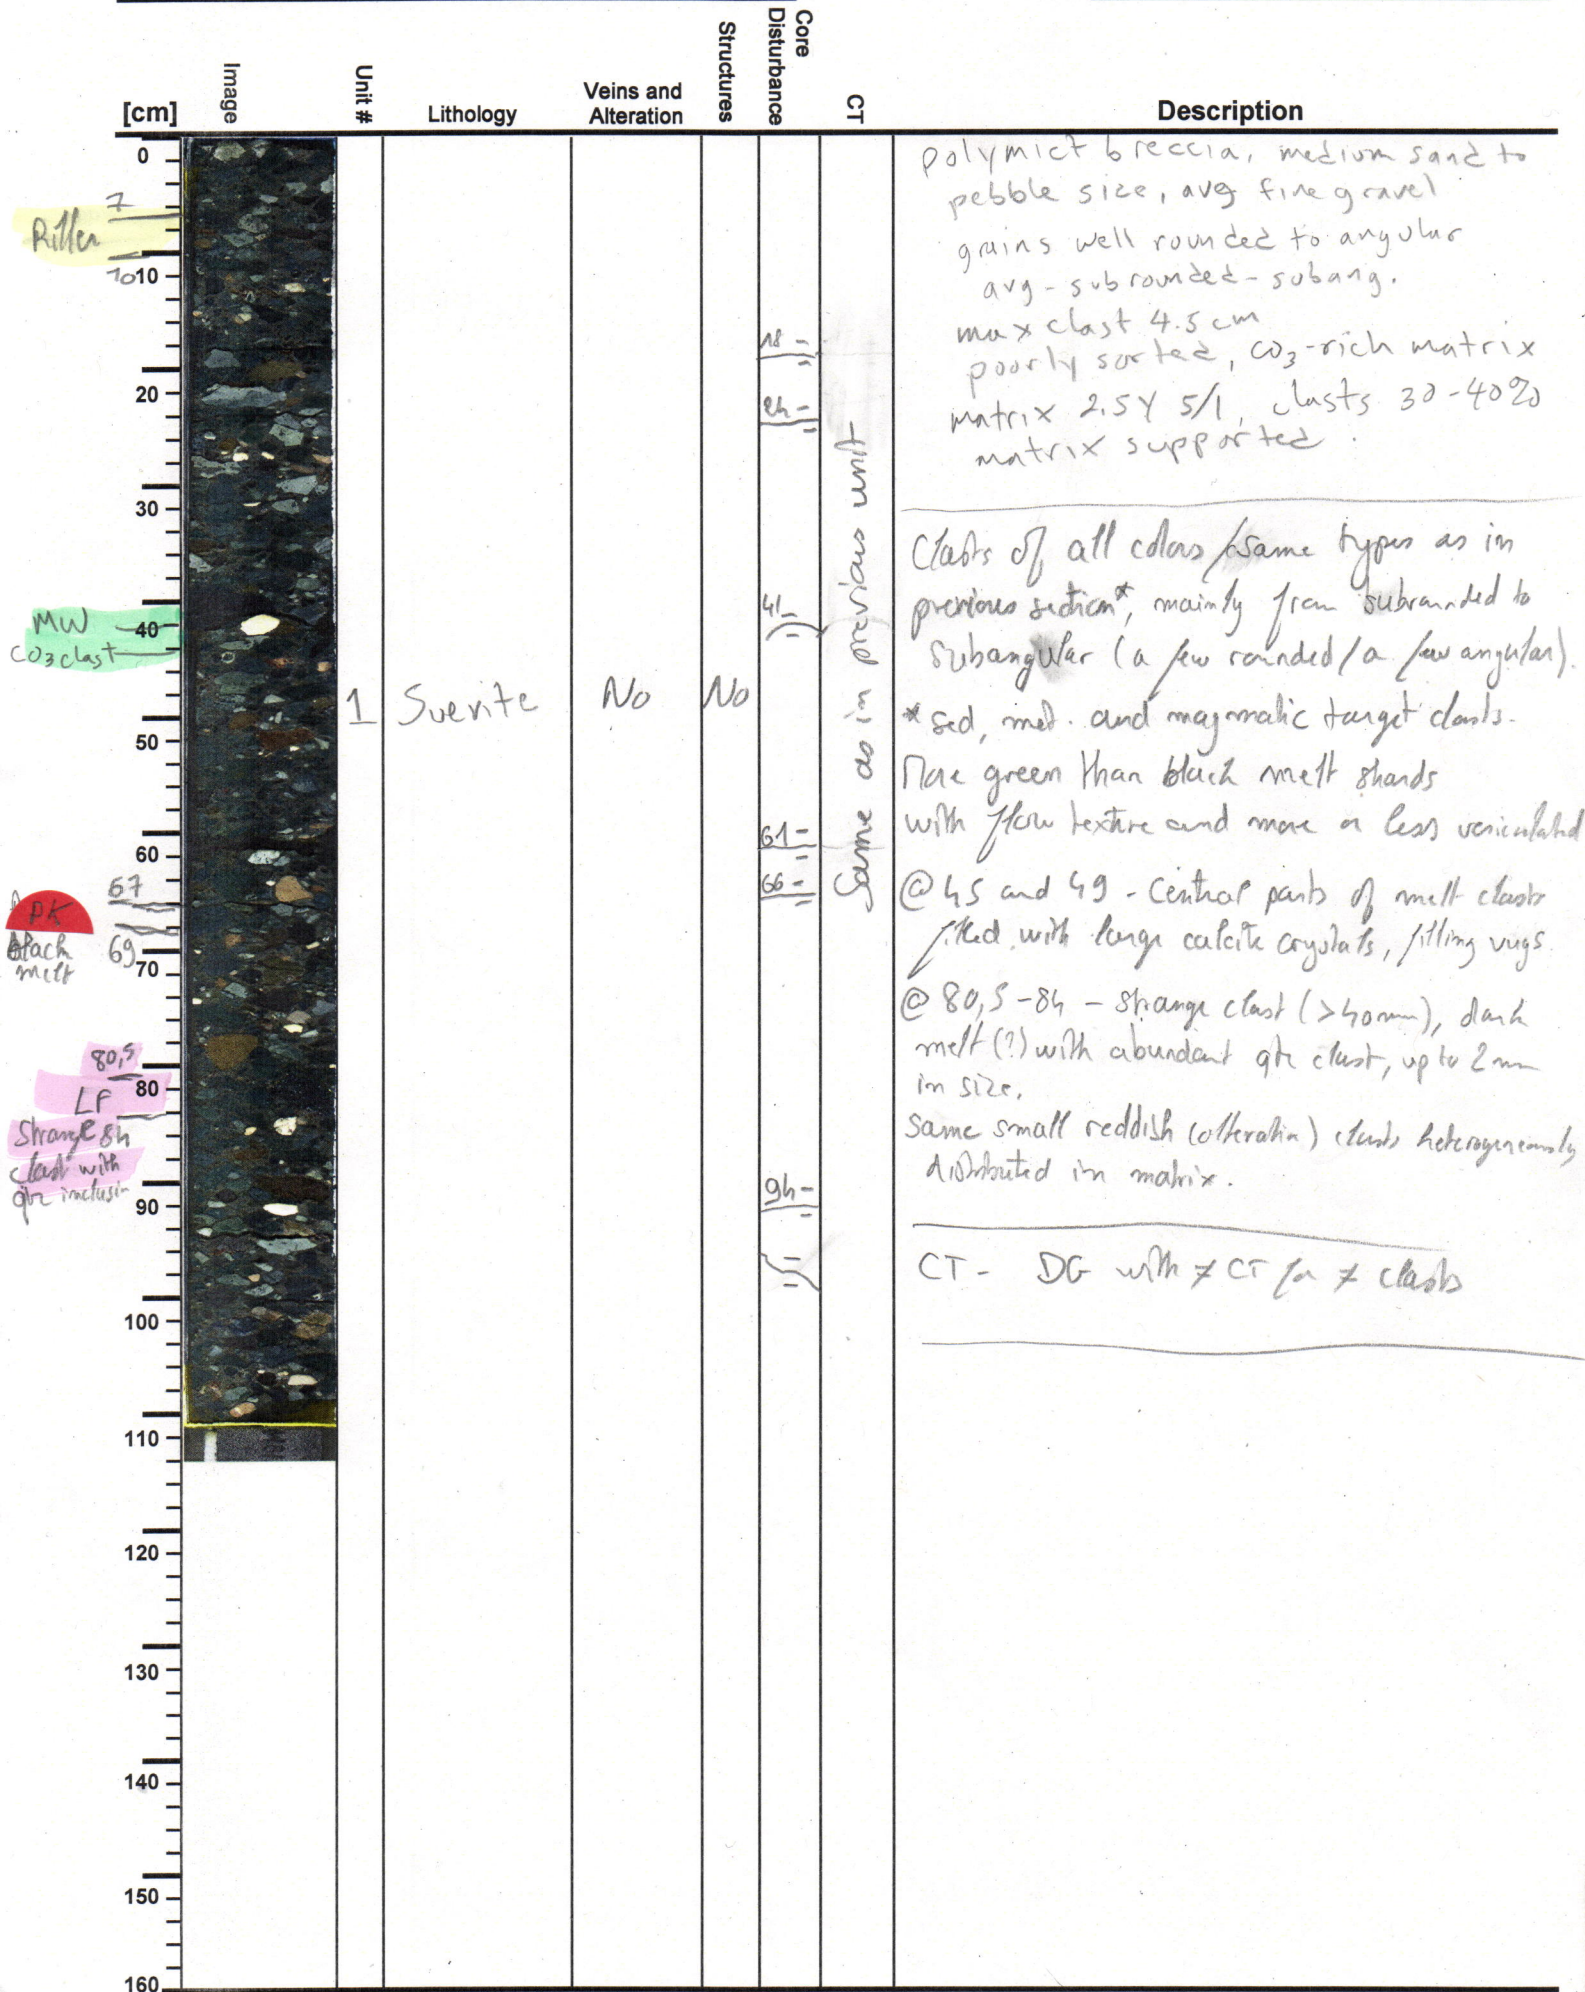 [cm]
Image
Unit #
Lithology
Veins and
Alteration
Structures
Core
Disturbance
CT
Description
0
10
20
30
40
50
60
70
80
90
100
110
120
130
140
150
160
7
Riller
10
MW
CO3 clast
67
PK
black
melt
69
80,5
LF
Strange 84
clast with
qtz inclusion
1
Suevite
No
No
18
24
41
61
66
94
Same as in previous unit
polymict breccia, medium sand to
pebble size, avg fine gravel
grains well rounded to angular
avg - subrounded - subang.
max clast 4.5 cm
poorly sorted, CO3-rich matrix
matrix 2.5Y 5/1, clasts 30-40%
matrix supported.
Clasts of all colors / same types as in
previous section*, mainly from subrounded to
subangular (a few rounded / a few angular).
* sed, met. and magmatic target clasts.
More green than black melt shards
with flow texture and more or less vesiculated
@ 45 and 49 - Central parts of melt clasts
filled with large calcite crystals, filling vugs.
@ 80,5-84 - strange clast (>40mm), dark
melt (?) with abundant qtz clast, up to 2 mm
in size.
Same small reddish (alteration) clasts heterogeneously
distributed in matrix.
CT - DG with ≠ CT for ≠ clasts